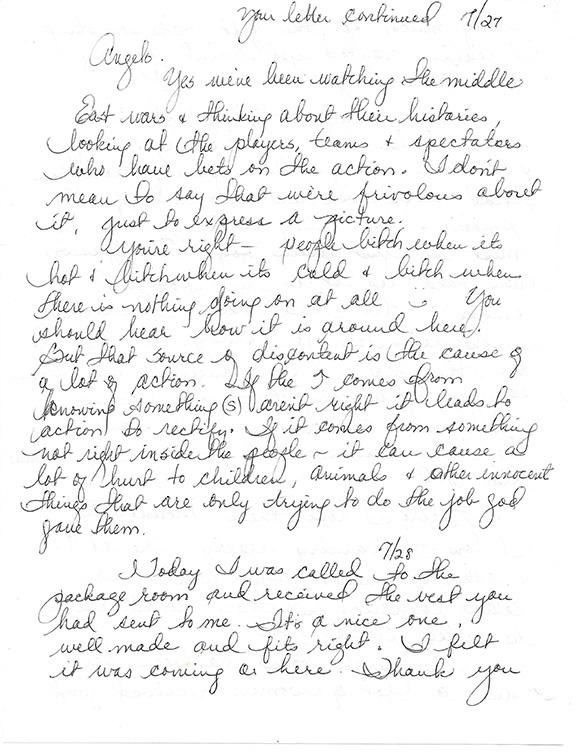 your letter continued 7/27
Angelo.
Yes we've been watching the middle
East wars & thinking about their histories,
looking at the players, teams & spectators
who have bets on the action. I don't
mean to say that we're frivolous about
it, just to express a picture.
You're right — people bitch when its
hot & bitch when its cold & bitch when
there is nothing going on at all You
should hear how it is around here.
But that source of discontent is the cause of
a lot of action. If the ↑ comes from
knowing something(s) aren't right it leads to
action to rectify. If it comes from something
not right inside the people ~ it can cause a
lot of hurt to children, animals & other innocent
things that are only trying to do the job god
gave them.
7/28
Today I was called to the
package room and received the vest you
had sent to me. It's a nice one,
well made and fits right. I felt
it was coming or here. Thank you